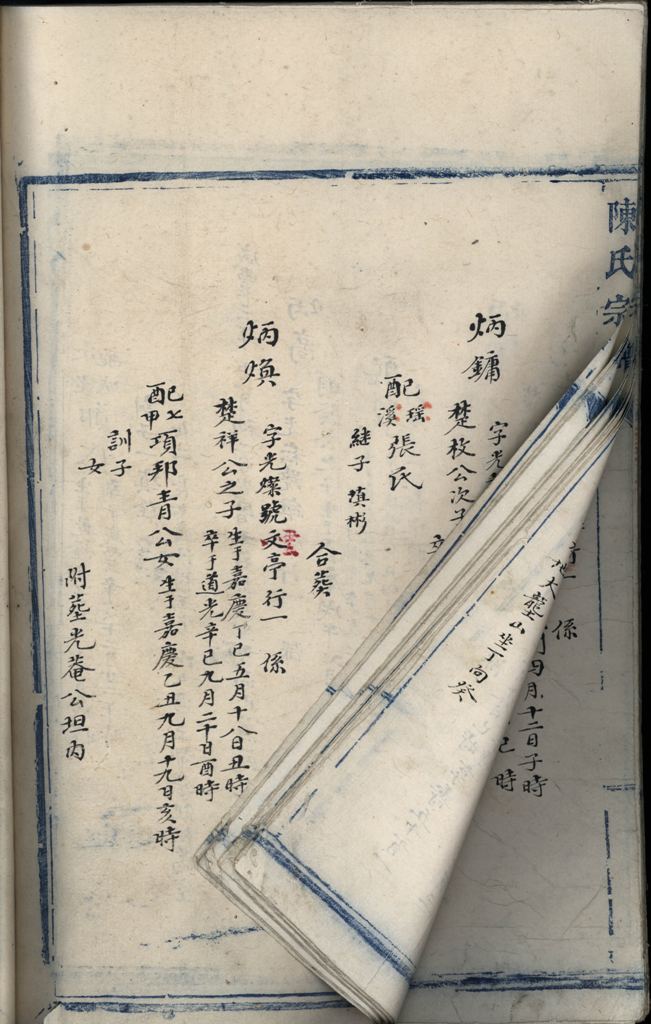 陳氏宗譜
係
月四月十二日子時
巳時
地大龍山坐丁向癸
炳鏞
字光
楚枚公次子
配瑤溪張氏
繼子慎彬
合葬
炳煥
字光燦號文亭行一係
楚祥公之子
生于嘉慶丁巳五月十八日丑時
卒于道光辛巳九月二十日酉時
配七甲項邦青公女
生于嘉慶乙丑九月十九日亥時
訓子
女
附葬光菴公坦內